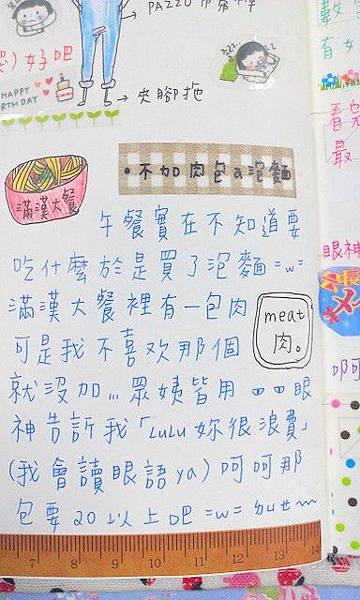 PAZZO
好吧
HAPPY
BIRTHDAY
→夾腳拖
•不加肉包a泡麵
滿漢大餐
午餐實在不知道要
吃什麼於是買了泡麵=w=
滿漢大餐裡有一包肉
meat
肉。
可是我不喜欢那個
就沒加...眾姨皆用 眼
神告訴我「LuLu妳很浪費」
(我會讀眼語ya)呵呵那
包要20以上吧=w= ㄉㄩㄝ~
7 8 9 10 11 12 13 14
有女
看完
最
眼神